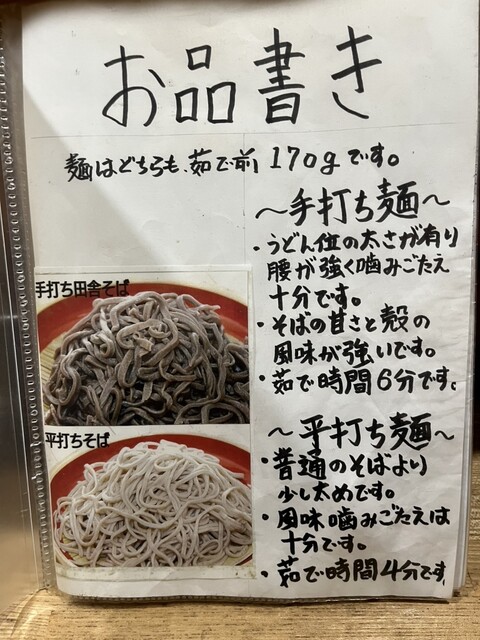 お品書き
麺はどちらも、茹で前170gです。
～手打ち麺～
・うどん位の太さが有り
腰が強く噛みごたえ
十分です。
・そばの甘さと殻の
風味が強いです。
・茹で時間6分です。
～平打ち麺～
・普通のそばより
少し太めです。
・風味噛みごたえは
十分です。
・茹で時間4分です
手打ち田舎そば
平打ちそば